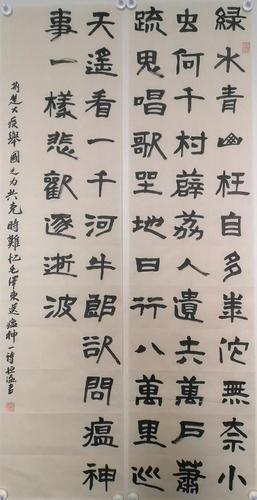 綠水青山枉自多華佗無奈小
虫何千村薜荔人遺矢萬戶蕭
疏鬼唱歌坐地日行八萬里巡
天遙看一千河牛郎欲問瘟神
事一樣悲歡逐逝波
荊楚大疫舉國之力共克時難忆毛澤東送瘟神一詩